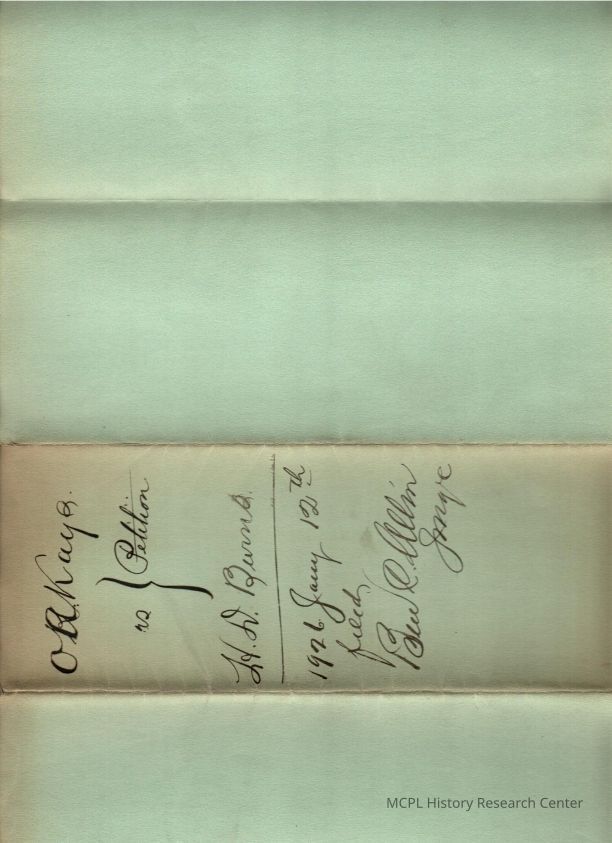 O.R. Kays.
vs } Petition
H.D. Burns.
1926 Jany 12th
filed
Ben C. Allin
JMCC
MCPL History Research Center